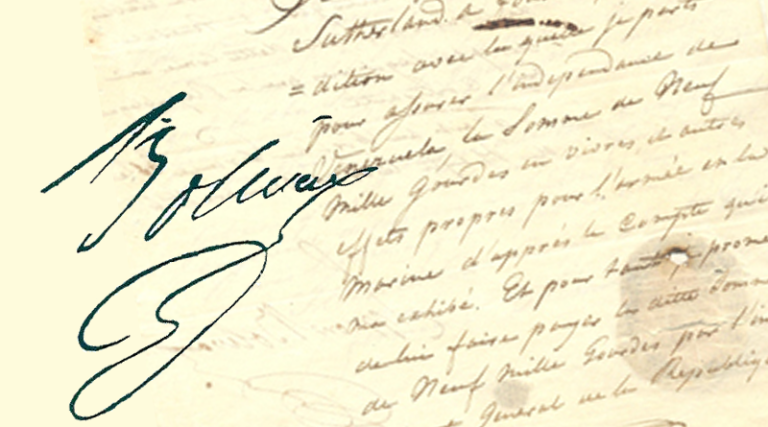 Sutherland à
=dition avec laquelle je parts
pour assurer l'independance de
Venezuela la Somme de Neuf
Mille Gourdes en vivres et autres
effets propres pour l'armée et la
Marine d'apprés le Compte qu'il
m'a exhibé. Et pour tant je prome
de lui faire payer la ditte Somm
de Neuf Mille Gourdes par l'in
General de la Republiq
Bolivar